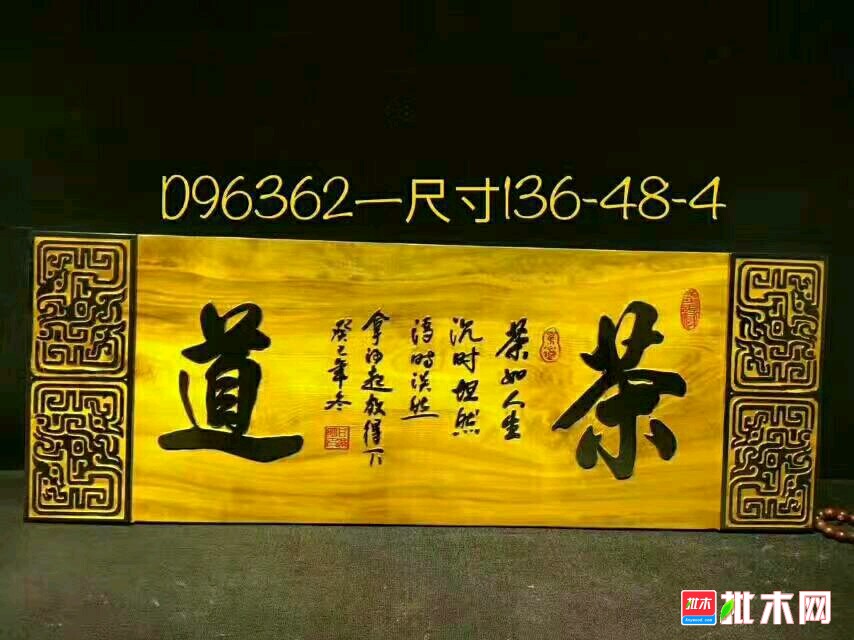 D96362一尺寸136-48-4
茶
茶如人生
沉时坦然
浮时淡然
拿得起放得下
癸巳年冬
道
批木
批木网